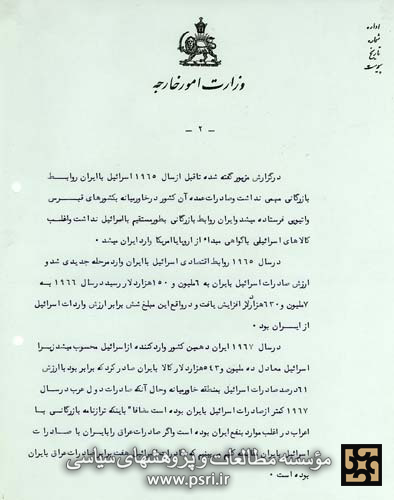 اداره
شماره
تاریخ
پیوست
وزارت امور خارجه
- ۲ -
در گزارش مزبور گفته شده تا قبل از سال ۱۹۶۵ اسرائیل با ایران روابط
بازرگانی مهمی نداشت و صادرات عمده آن کشور در خاورمیانه بکشورهای قبرس
واتیوپی فرستاده میشد و ایران روابط بازرگانی بطور مستقیم با اسرائیل نداشت و اغلب
کالاهای اسرائیلی با گواهی مبداء از اروپا یا امریکا وارد ایران میشد .
در سال ۱۹۶۵ روابط اقتصادی اسرائیل با ایران وارد مرحله جدیدی شد و
ارزش صادرات اسرائیل بایران به ۶ ملیون و ۱۵۰ هزار دلار رسید در سال ۱۹۶۶ به
۷ ملیون و ۶۳۰ هزار دلار افزایش یافت و در واقع این مبلغ شش برابر ارزش واردات اسرائیل
از ایران بود .
در سال ۱۹۶۷ ایران دهمین کشور وارد کننده از اسرائیل محسوب میشد زیرا
اسرائیل معادل ده ملیون و ۵۴۳ هزار دلار کالا بایران صادر کرد که برابر بود با ارزش
۶۱ درصد صادرات اسرائیل بمنطقه خاورمیانه و حال آنکه صادرات دول عرب در سال
۱۹۶۷ کمتر از صادرات اسرائیل بایران بوده است مضافا" باینکه ترازنامه بازرگانی با
اعراب در اغلب موارد بنفع ایران بوده است و اگر صادرات عراق را بایران با صادرات
اسرائیل بایران مقایسه کنیم صادرات اسرائیل هفت برابر صادرات عراق بایران
بوده است .
مؤسسه مطالعات و پژوهشهای سیاسی
www.psri.ir